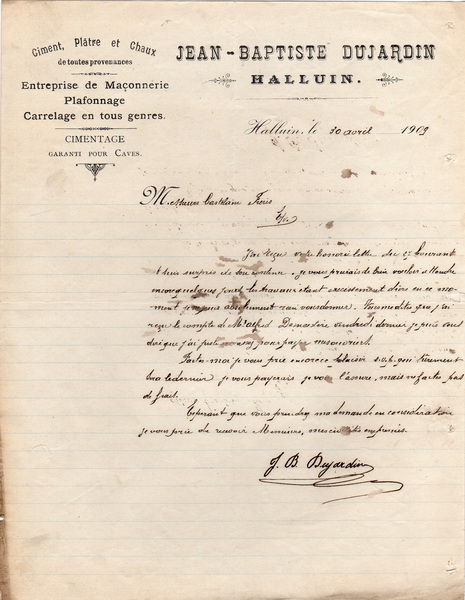 Ciment, Plâtre et Chaux
de toutes provenances
Entreprise de Maçonnerie
Plafonnage
Carrelage en tous genres.
CIMENTAGE
GARANTI POUR CAVES.
JEAN-BAPTISTE DUJARDIN
HALLUIN.
Halluin, le 30 avril 1909
Messieurs Frères
J'ai reçu votre honoré lettre du courant
et suis surpris de son, je vous
encore quelques jours les travaux étant en ce mo-
ment je ne puis absolument rien vous donner. Vous me dites que j'ai
reçu le compte de Mr Alfred vendredi dernier je puis vous
dire que j'ai pour payer mes ouvriers.
Faites-moi je vous prie encore ce plaisir s.v.p.
je vous payerais je vous l'assure, mais ne faites pas
de frais.
Espérant que vous prendrez ma demande en considération
je vous prie de recevoir Messieurs, mes empressés.
J. B. Dujardin